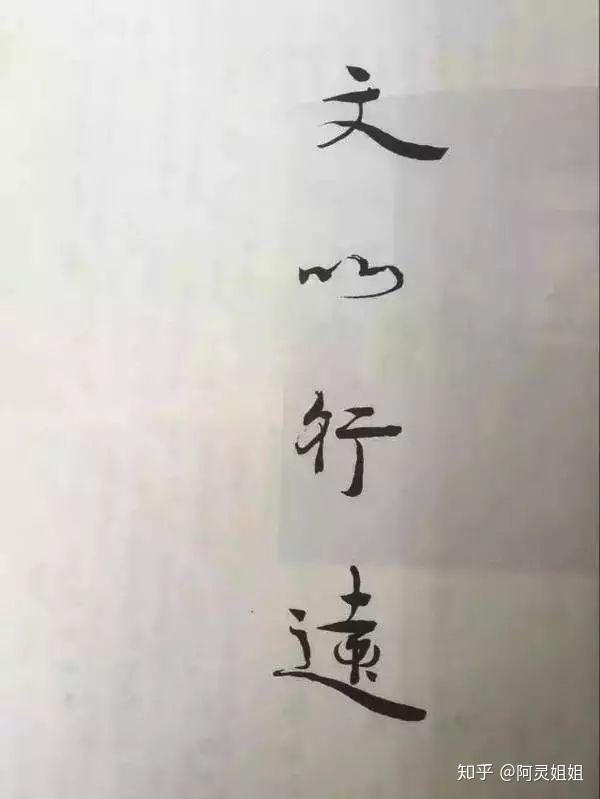 文以行遠
知乎 @阿灵姐姐